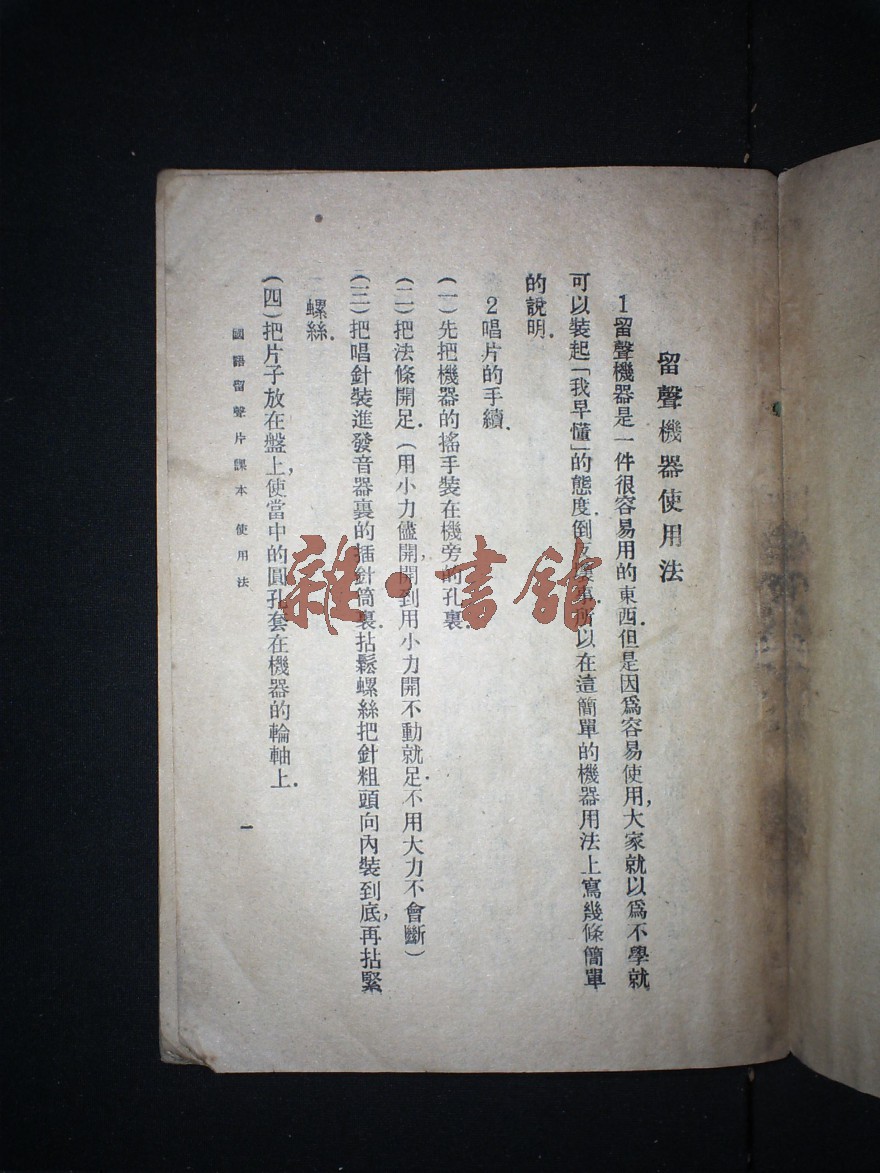 留聲機器使用法
1 留聲機器是一件很容易用的東西.但是因爲容易使用,大家就以爲不學就
可以裝起「我早懂」的態度.倒事.所以在這簡單的機器用法上寫幾條簡單
的說明.
2 唱片的手續.
(一)先把機器的搖手裝在機旁的孔裏.
(二)把法條開足.(用小力儘開,開到用小力開不動就足.不用大力不會斷)
(三)把唱針裝進發音器裏的插針筒裏.拈鬆螺絲把針粗頭向內裝到底,再拈緊
螺絲.
(四)把片子放在盤上,使當中的圓孔套在機器的輪軸上.
國語留聲片課本 使用法
一
雜·書館